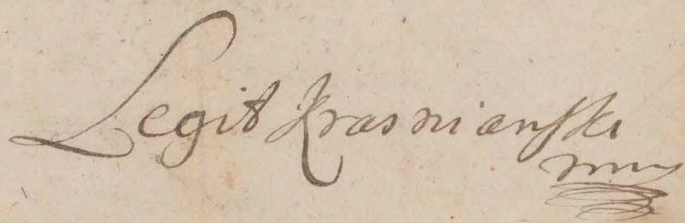 Legit Krasnianſki
mm